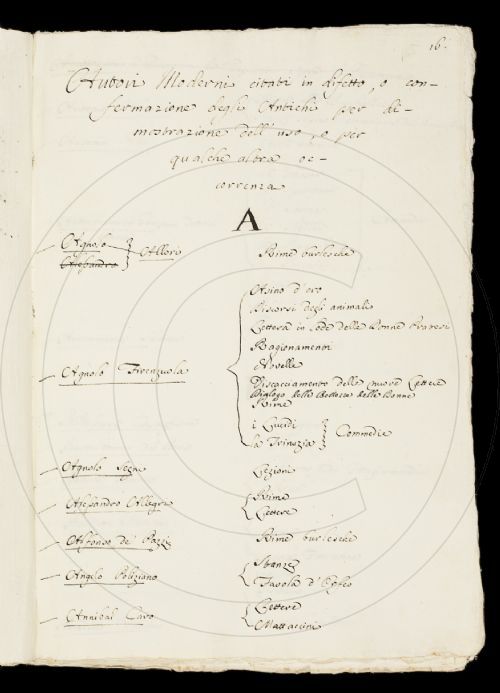 16.
Autori Moderni citati in difetto, o con-
fermazione degli Antichi per di-
mostrazione dell' uso, o per
qualche altra oc-
correnza
A
Agnolo
Alessandro } Allori Rime burlesche
Agnolo Firenzuola { Asino d'oro
Discorsi degli animali
Lettera in lode delle Donne Pratesi
Ragionamenti
Novelle
Discacciamento delle nuove Lettere
Dialogo delle Bellezze delle Donne
Rime
i Lucidi
la Trinuzia } Commedie
Agnolo Segni Lezioni
Alessandro Allegri { Rime
Lettere
Alfonso de' Pazzi Rime burlesche
Angelo Poliziano { Stanze
Favola d'Orfeo
Annibal Caro { Lettere
Mattaccini